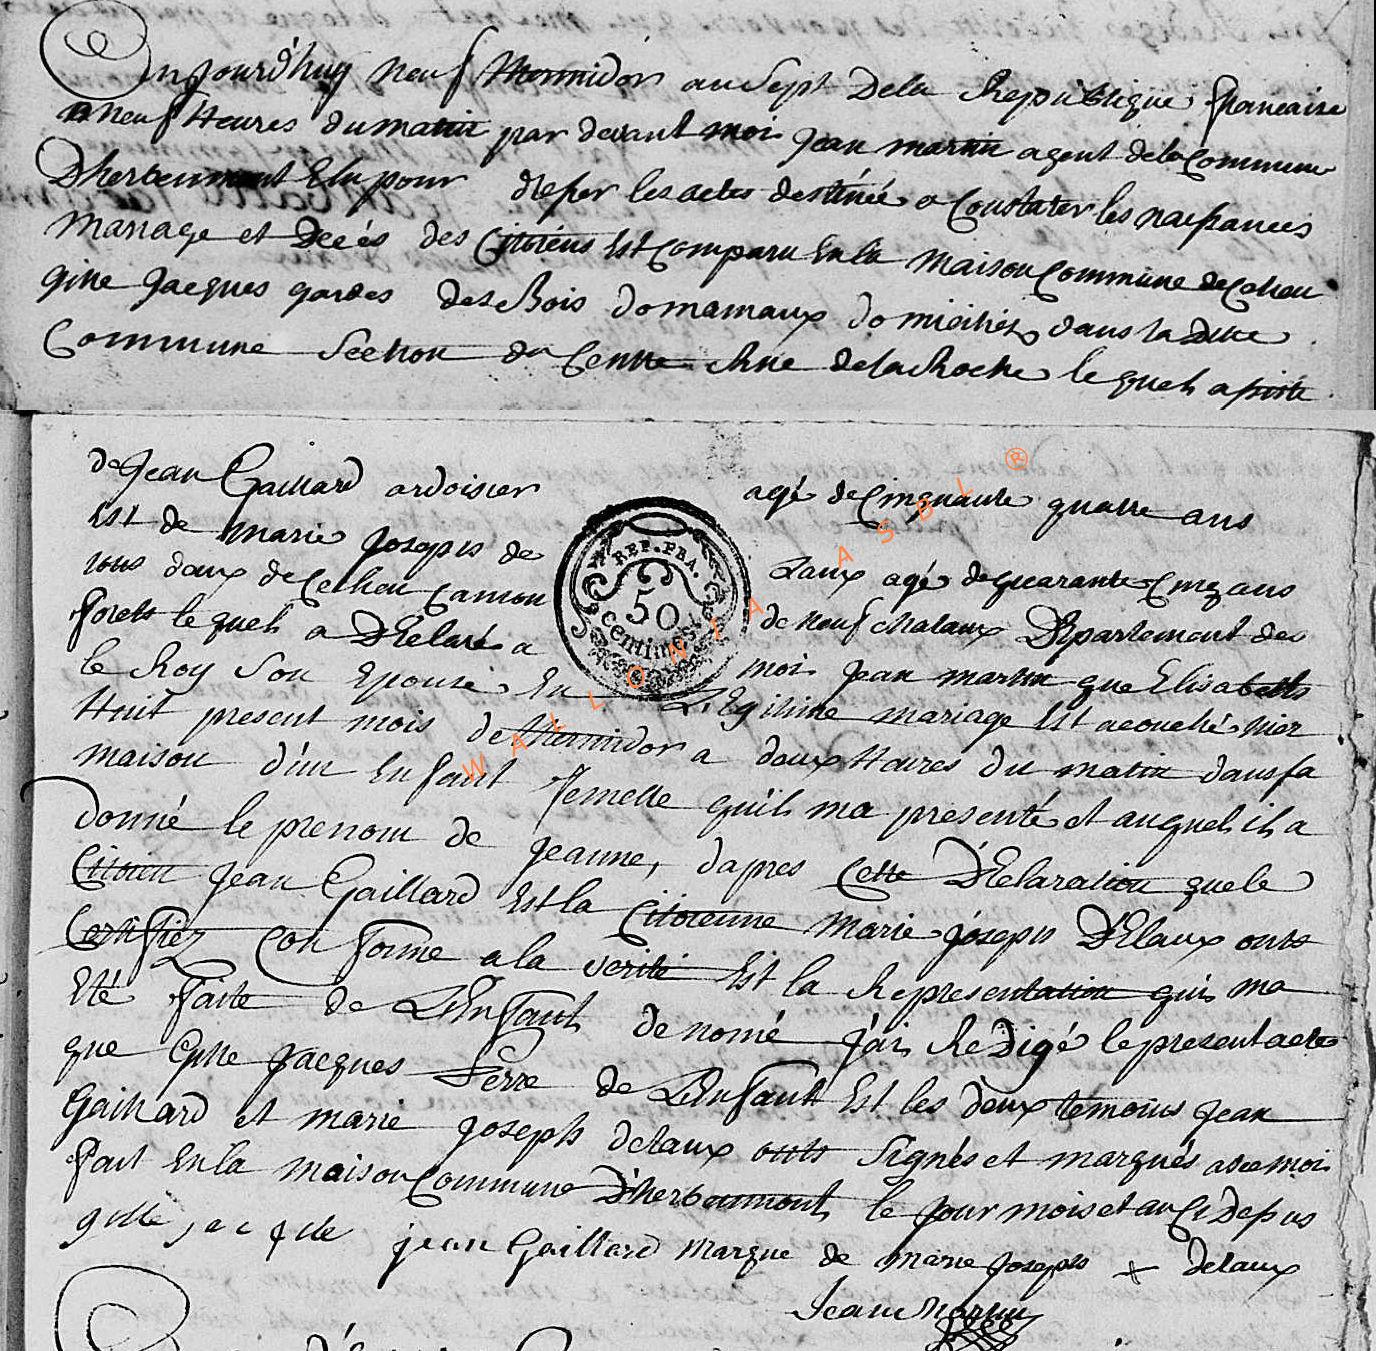 Enjourd'huy neuf thermidor an sept De la Republique francaise
a neuf Heures du matin par devant moi Jean martin agent de la Commune
Dherbeumont Elu pour les actes destiné a Constater les naissances
Mariage et Decés des Citoiens Est Comparu En la Maison Commune
gille Jacques gardes des Bois domaniaux domiciliez dans la Ditte
Commune Section du Centre Rue de la Roche le quel assisté
de Jean Gaillard ardoisier agé de Cinquante quatre ans
Est de marie Joseph de Laux agé de quarante Cinq ans
tous deux de Canton de neufchataux Département des
Forets le quel a Déclaré a moi Jean martin que Elisabeth
le Roy Son Epouse En Légitime mariage Est acouché hier
Huit present mois de thermidor a deux Heures du matin dans sa
maison d'un Enfant Femelle qu'il ma presenté et auquel il a
Donné le prenom de Jeanne, dapres Cette Déclaration que le
Citoien Jean Gaillard Est la Citoienne Marie Joseph Délaux onts
Certifiez Conforme a la verité Est la Representation qui ma
Eté Faite de L'Enfant denomé J'ai Rédigé le present acte
que Gille Jacques Perre de L'Enfant Est les deux temoins Jean
Gaillard et marie Joseph delaux onts Signés et marqués avec moi
Fait En la maison Commune D'herbeumont le jour mois et an Depus
gille jacque jean Gaillard marque de marie Joseph + delaux
Jean Martin
REP. FRA.
50
centimes
WALLONIA ASBL ®